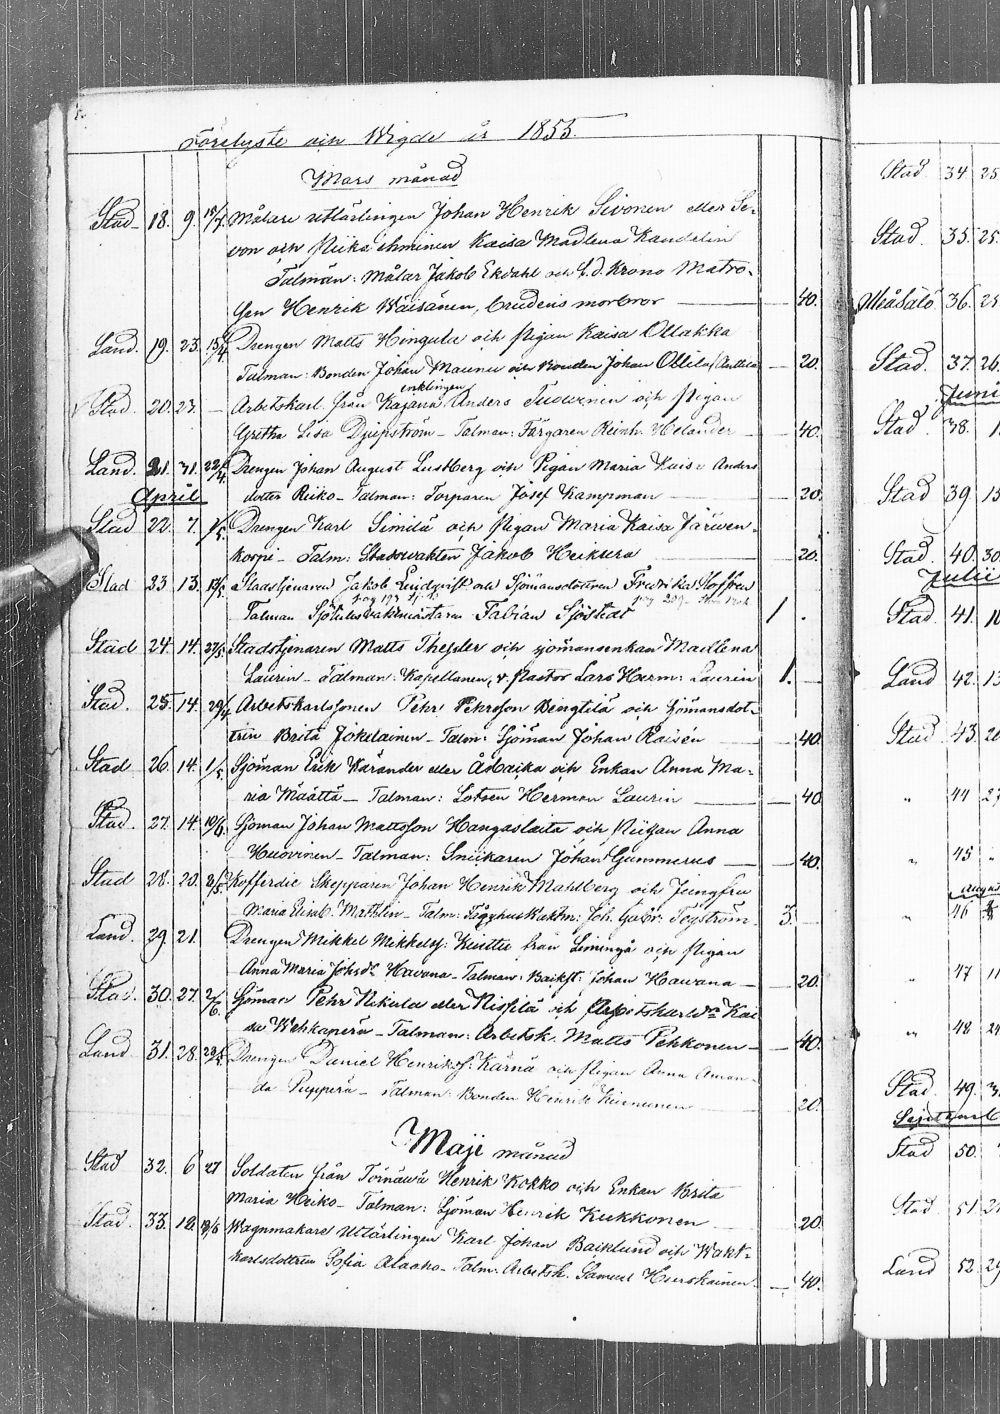 Förelyste och Wigde år 1855.
Mars månad
Stad 18. 9. 19/4 Målare utlärlingen Johan Henrik Sivonen eller Se-
von och Pikohminen Kaisa Madlena Kandelin
Talman: Målar Jakob Ekdahl och f.d. Krono Matro-
sen Henrik Wäisänen, brudens morbror 40.
Land. 19. 23. 15/4 Drengen Matts Hingula och Pigan Kaisa Ollakka
Talman: Bonden Johan Maunu och Bonden Johan Ollila 20.
enklingen
Stad 20. 23. - Arbetskarl. från Kajana Anders Tuowinen och Pigan
Gretha Lisa Djupström - Talman: Färgaren Reinh. Helander 40.
Land. 21. 31. 22/4 Drengen Johan August Lustberg och Pigan Maria Kaisa Anders
dotter Reiko - Talman: Torparen Josef Kampman 20.
April
Stad 22. 7. 1/5 Drengen Karl Similä och Pigan Maria Kaisa Järwen-
korpi - Talm: Stadswakten Jakob Heikura 20.
Stad 23 13. 13/5 Stadstjenaren Jakob Lindqvist och Sjömansdottren Fredrika Hoffrén
Talman Sjötullsvaktmästaren Fabian Sjöstedt 1.
Stad 24. 14. 27/5 Stadstjenaren Matts Thessler och sjömansenkan Madlena
Laurin - Talman: Kapellanen, v. Pastor Lars Herm: Laurin 1. -
Stad. 25. 14. 29/4 Arbetskarlssonen Pehr Pehrsson Bengtilä och Sjömansdot-
tren Brita Jokelainen - Talm: Sjöman Johan Raisén 40.
Stad 26. 14. 1/5 Sjöman Erik Karander eller och Enkan Anna Ma-
ria Määttä - Talman: Lotsen Herman Laurin 40.
Stad. 27. 14. 10/6 Sjöman Johan Mattsson Hangaslaita och Pigan Anna
Huovinen - Talman: Snickaren Johan Gummerus 40.
Stad 28. 20. 8/5 Kofferdie Skepparen Johan Henrik Mahlberg och Jungfru
Maria Elisab. Matthlin - Talm: Joh. Gabr. Toyström 3. -
Land. 29. 21. Drengen Mikkel Mikkelss: Kinttu från Limingå och Pigan
Anna Maria Johsdr Hawana - Talman: Johan Hawana 20.
Stad. 30. 27. 2/6 Sjöman Pehr Nikula eller Nissilä och Arbetskarlsdr Kai
sa Wehkaperä - Talman: Arbetsk. Matts Pehkonen 40.
Land 31. 28. 29/4 Drengen Daniel Henrikss: Kärnä och Pigan Anna Aman-
da Pupperä - Talman: Bonden Henrik Kinnunen 20.
Maji månad
Stad 32. 6 27 Soldaten från Torneå Henrik Kokko och Enkan Brita
Maria Heiko - Talman: Sjöman Henrik Kukkonen 20.
Stad. 33. 10. Wagnmakare utlärlingen Karl Johan Backlund och Wakt-
karlsdottren Sofia Alaaho - Talm: Arbetsk. Samuel Huuskainen 40.
Stad 34 25
Stad. 35. 25.
36. 25
Stad. 37. 26.
Juni
Stad. 38. 1.
Stad 39 15
Stad 40. 30.
Julii
Stad 41. 10
Land 42. 13
Stad 43. 20
" 44 27
" 45 "
August
" 46
" 47 11
" 48 24
Stad 49. 3
Septemb
Stad 50.
Stad. 51. 21
Land 52. 29